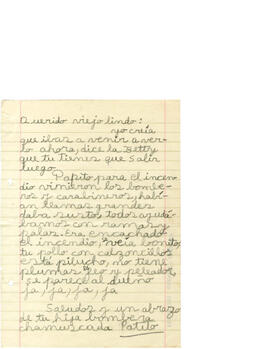 Querido viejo lindo:
yo creía
que ibas a venir a ver-
lo ahora, dice la Betty
que tu tienes que salir
luego.
Papito, para el incen-
dio vinieron los bombe-
ros y carabineros, habí-
an llamas grandes
daba susto, todos ayudá-
bamos con ramas y
palas era encachado
el incendio, veía bonito,
tu pollo con calzoncillos
está pilucho, no tiene
plumas feo y peleador,
se parece al dueño
ja, ja, ja, ja
Saludos y un abrazo
de tu hija bombera
chamuscada Patito